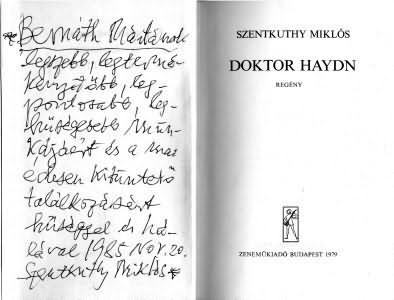 Bernáth Máriának
legszebb, legtermé-
kenyebb, leg-
pontosabb, leg-
hűségesebb mun-
kájáért és a mai
édesen kitüntető
találkozásért
hűséggel és há-
lával 1985 Nov. 20.
Szentkuthy Miklós
SZENTKUTHY MIKLÓS
DOKTOR HAYDN
REGÉNY
ZENEMŰKIADÓ BUDAPEST 1979